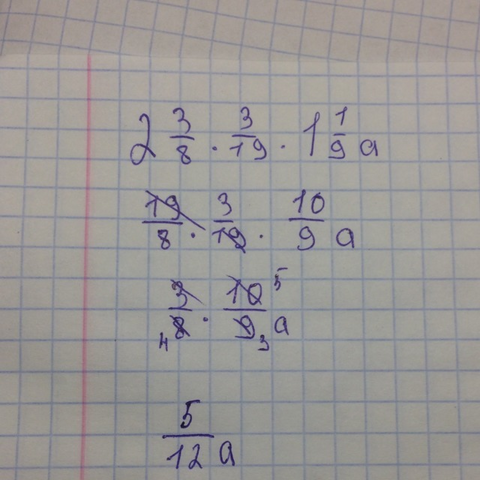 2 3/8 · 3/19 · 1 1/9 a
19/8 · 3/19 · 10/9 a
3/8 4 · 10/9 5 3 a
5/12 a